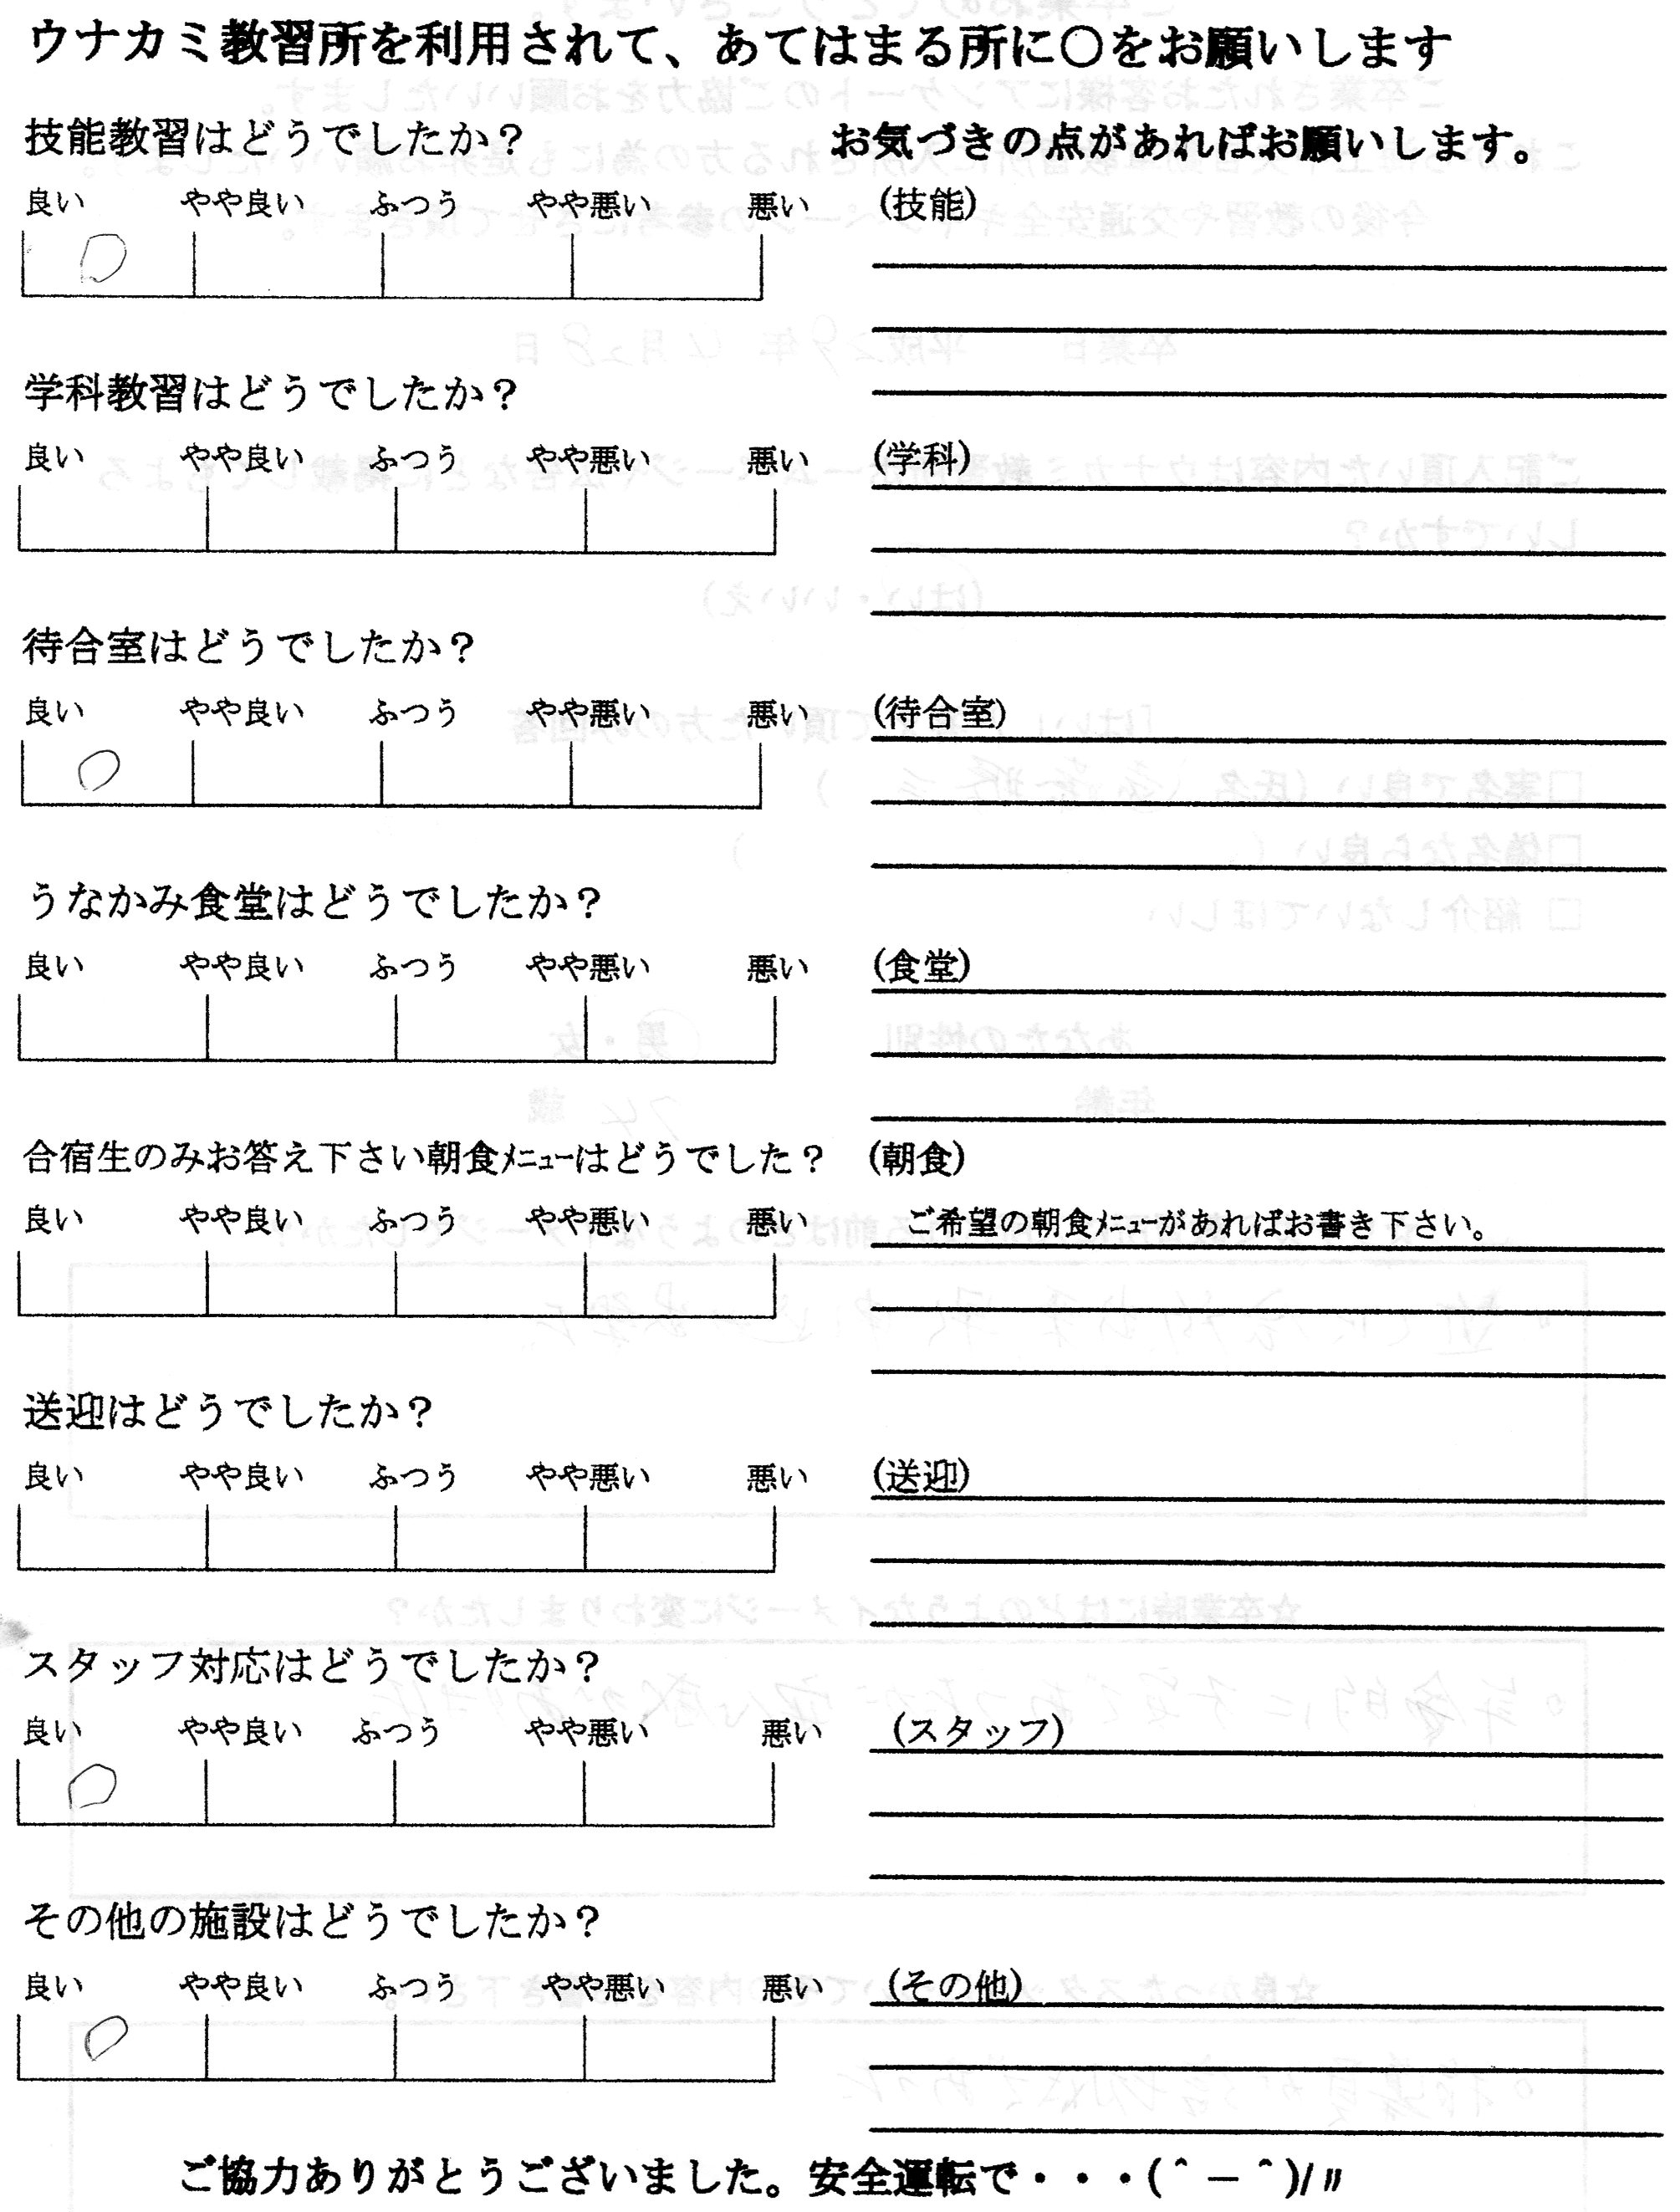 ウナカミ教習所を利用されて、あてはまる所に○をお願いします
技能教習はどうでしたか？
お気づきの点があればお願いします。
良い やや良い ふつう やや悪い 悪い
(技能)
○
学科教習はどうでしたか？
良い やや良い ふつう やや悪い 悪い
(学科)
待合室はどうでしたか？
良い やや良い ふつう やや悪い 悪い
(待合室)
○
うなかみ食堂はどうでしたか？
良い やや良い ふつう やや悪い 悪い
(食堂)
合宿生のみお答え下さい朝食メニューはどうでした？
(朝食)
良い やや良い ふつう やや悪い 悪い
ご希望の朝食メニューがあればお書き下さい。
送迎はどうでしたか？
良い やや良い ふつう やや悪い 悪い
(送迎)
スタッフ対応はどうでしたか？
良い やや良い ふつう やや悪い 悪い
(スタッフ)
○
その他の施設はどうでしたか？
良い やや良い ふつう やや悪い 悪い
(その他)
○
ご協力ありがとうございました。安全運転で・・・(＾－＾)/〃